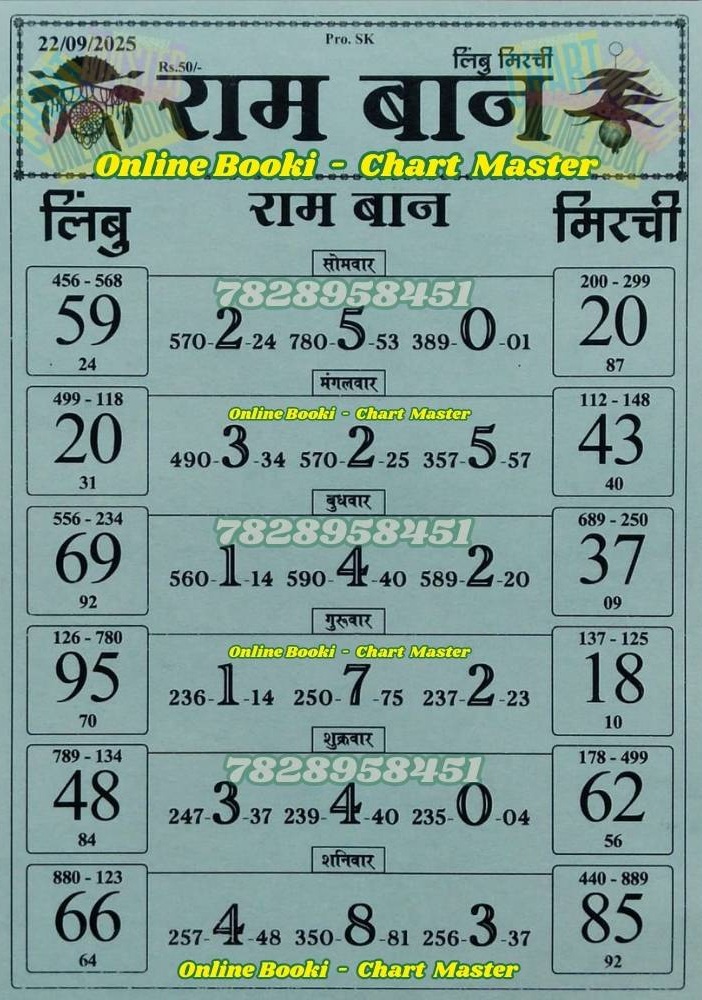 22/09/2025
Pro. SK
Rs.50/-
लिंबु मिरची
राम बान
Online Booki - Chart Master
लिंबु राम बान मिरची
सोमवार
456 - 568
59
24
7828958451
570-2-24 780-5-53 389-0-01
200 - 299
20
87
मंगलवार
499 - 118
20
31
Online Booki - Chart Master
490-3-34 570-2-25 357-5-57
112 - 148
43
40
बुधवार
556 - 234
69
92
7828958451
560-1-14 590-4-40 589-2-20
689 - 250
37
09
गुरूवार
126 - 780
95
70
Online Booki - Chart Master
236-1-14 250-7-75 237-2-23
137 - 125
18
10
शुक्रवार
789 - 134
48
84
7828958451
247-3-37 239-4-40 235-0-04
178 - 499
62
56
शनिवार
880 - 123
66
64
257-4-48 350-8-81 256-3-37
440 - 889
85
92
Online Booki - Chart Master